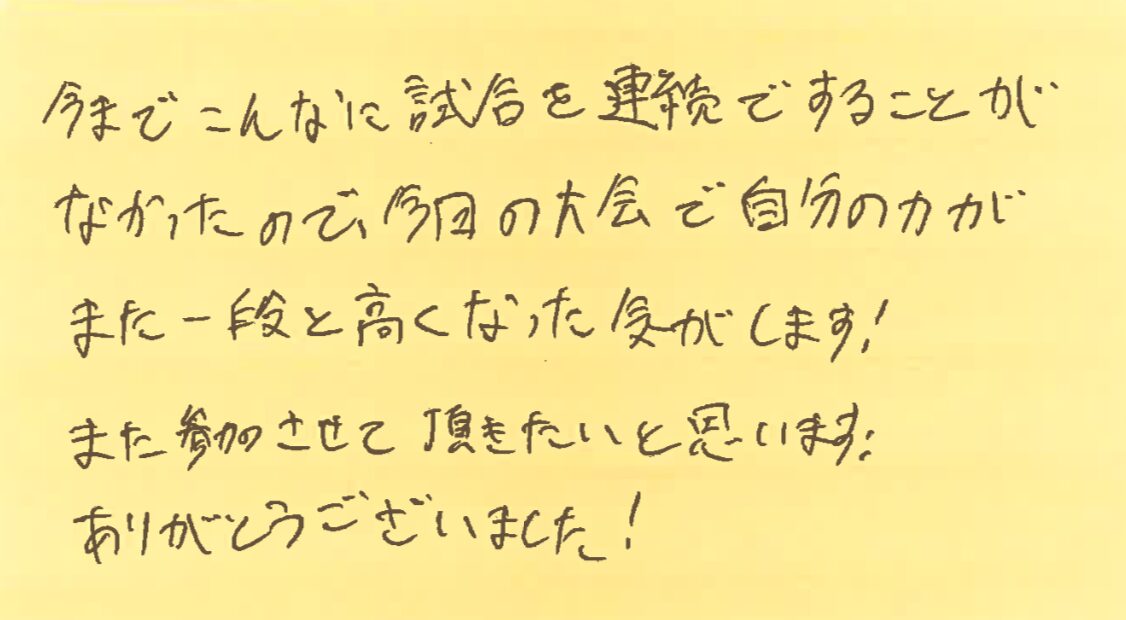 今までこんなに試合を連続ですることが
なかったので、今回の大会で自分の力が
また一段と高くなった気がします!
また参加させて頂きたいと思います!
ありがとうございました!